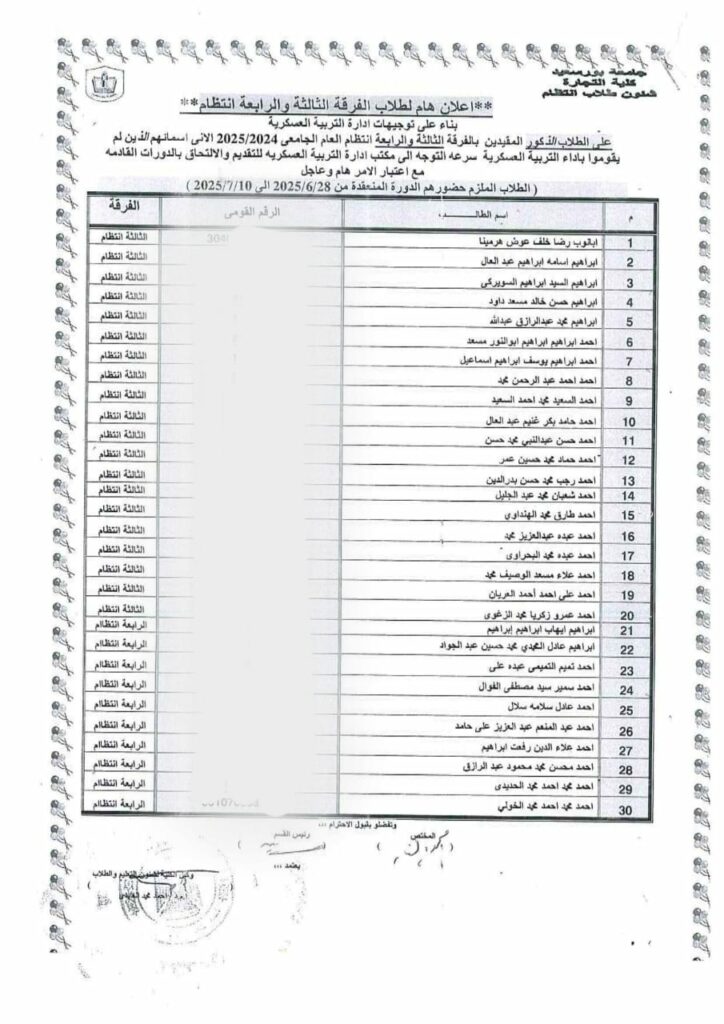 جامعة بورسعيد
كلية التجارة
شئون طلاب انتظام
**اعلان هام لطلاب الفرقة الثالثة والرابعة انتظام**
بناء على توجيهات ادارة التربية العسكرية
على الطلاب/الذكور المقيدين بالفرقة الثالثة والرابعة انتظام العام الجامعى 2025/2024 الاتى اسمائهم/الذين لم
يقوموا باداء التربية العسكرية سرعه التوجه الى مكتب ادارة التربية العسكريه للتقديم والالتحاق بالدورات القادمه
مع اعتبار الامر هام وعاجل
( الطلاب الملزم حضورهم الدورة المنعقدة من 2025/6/28 الى 2025/7/10 )
م اسم الطالب الرقم القومى الفرقة
1 ابانوب رضا خلف عوض هرمينا الثالثة انتظام
2 ابراهيم اسامه ابراهيم عبد العال الثالثة انتظام
3 ابراهيم السيد ابراهيم السويركى الثالثة انتظام
4 ابراهيم حسن خالد مسعد داود الثالثة انتظام
5 ابراهيم محمد عبدالرازق عبدالله الثالثة انتظام
6 احمد ابراهيم ابراهيم ابوالنور مسعد الثالثة انتظام
7 احمد ابراهيم يوسف ابراهيم اسماعيل الثالثة انتظام
8 احمد احمد عبد الرحمن محمد الثالثة انتظام
9 احمد السعيد محمد احمد السعيد الثالثة انتظام
10 احمد حامد بكر غنيم عبد العال الثالثة انتظام
11 احمد حسن عبدالنبي محمد حسن الثالثة انتظام
12 احمد حماد محمد حسين عمر الثالثة انتظام
13 احمد رجب محمد حسن بدرالدين الثالثة انتظام
14 احمد شعبان محمد عبد الجليل الثالثة انتظام
15 احمد طارق محمد الهنداوي الثالثة انتظام
16 احمد عبده عبدالعزيز محمد الثالثة انتظام
17 احمد عبده محمد البحراوى الثالثة انتظام
18 احمد علاء مسعد الوصيف محمد الثالثة انتظام
19 احمد على احمد أحمد العريان الثالثة انتظام
20 احمد عمرو زكريا محمد الزغوى الثالثة انتظام
21 ابراهيم ايهاب ابراهيم إبراهيم الرابعة انتظاام
22 ابراهيم عادل المحمدي محمد حسين عبد الجواد الرابعة انتظاام
23 احمد تميم التميمى عبده على الرابعة انتظاام
24 احمد سمير سيد مصطفى الفوال الرابعة انتظاام
25 احمد عادل سلامه سلال الرابعة انتظاام
26 احمد عبد المنعم عبد العزيز على حامد الرابعة انتظاام
27 احمد علاء الدين رفعت ابراهيم الرابعة انتظاام
28 احمد محسن محمد محمود عبد الرازق الرابعة انتظاام
29 احمد محمد احمد محمد الحديدى الرابعة انتظاام
30 احمد محمد احمد محمد الخولي الرابعة انتظاام
وتفضلو بقبول الاحترام ،،،
المختص رئيس القسم
يعتمد ،،،
وكيل الكلية لشئون التعليم والطلاب